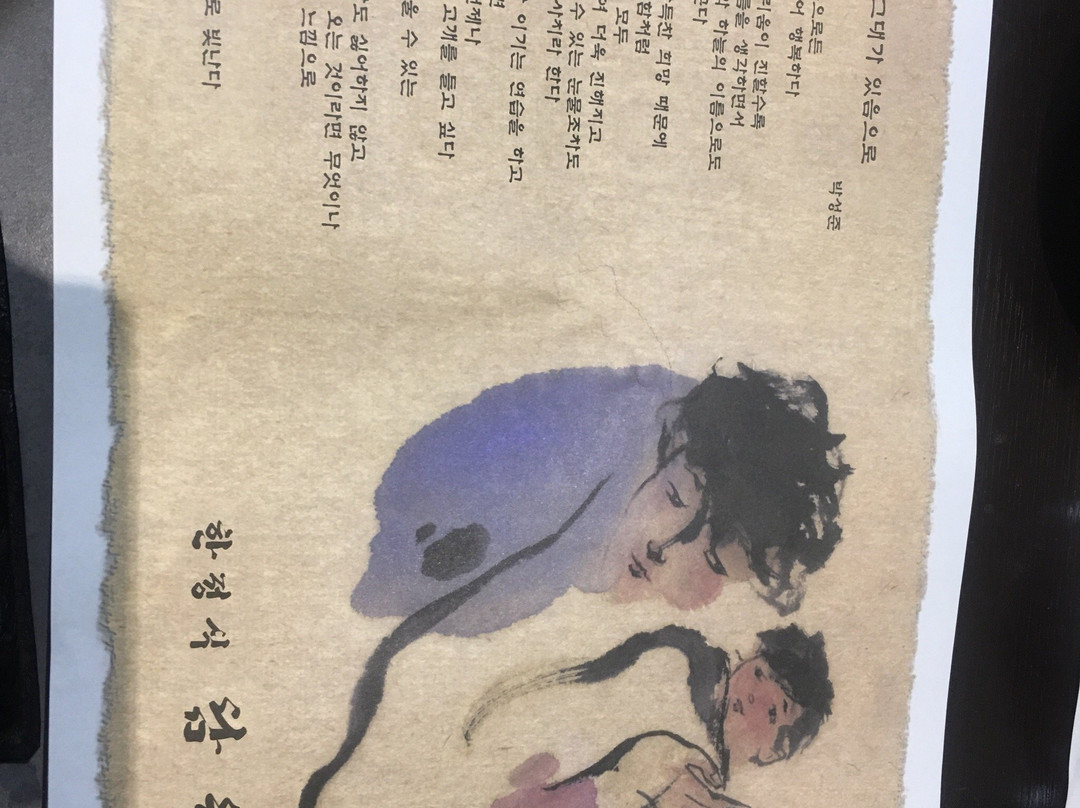 그대가 있음으로
박성준
으로든
어 행복하다
리움이 진할수록
들을 생각하면서
하늘의 이름으로도
득찬 희망 때문에
함처럼
모두
더욱 진해지고
수 있는 눈물조차도
사치라 한다
이기는 연습을 하고
언제나
고개를 들고 싶다
을 수 있는
도 싫어하지 않고
오는 것이라면 무엇이나
느낌으로
로 빛난다
한정식 담